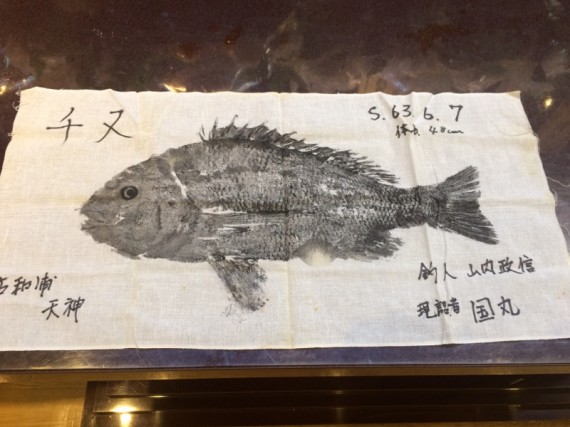 チヌ
S.63.6.7
体長 48cm
古和浦
天神
釣人 山内政信
現認者 国丸